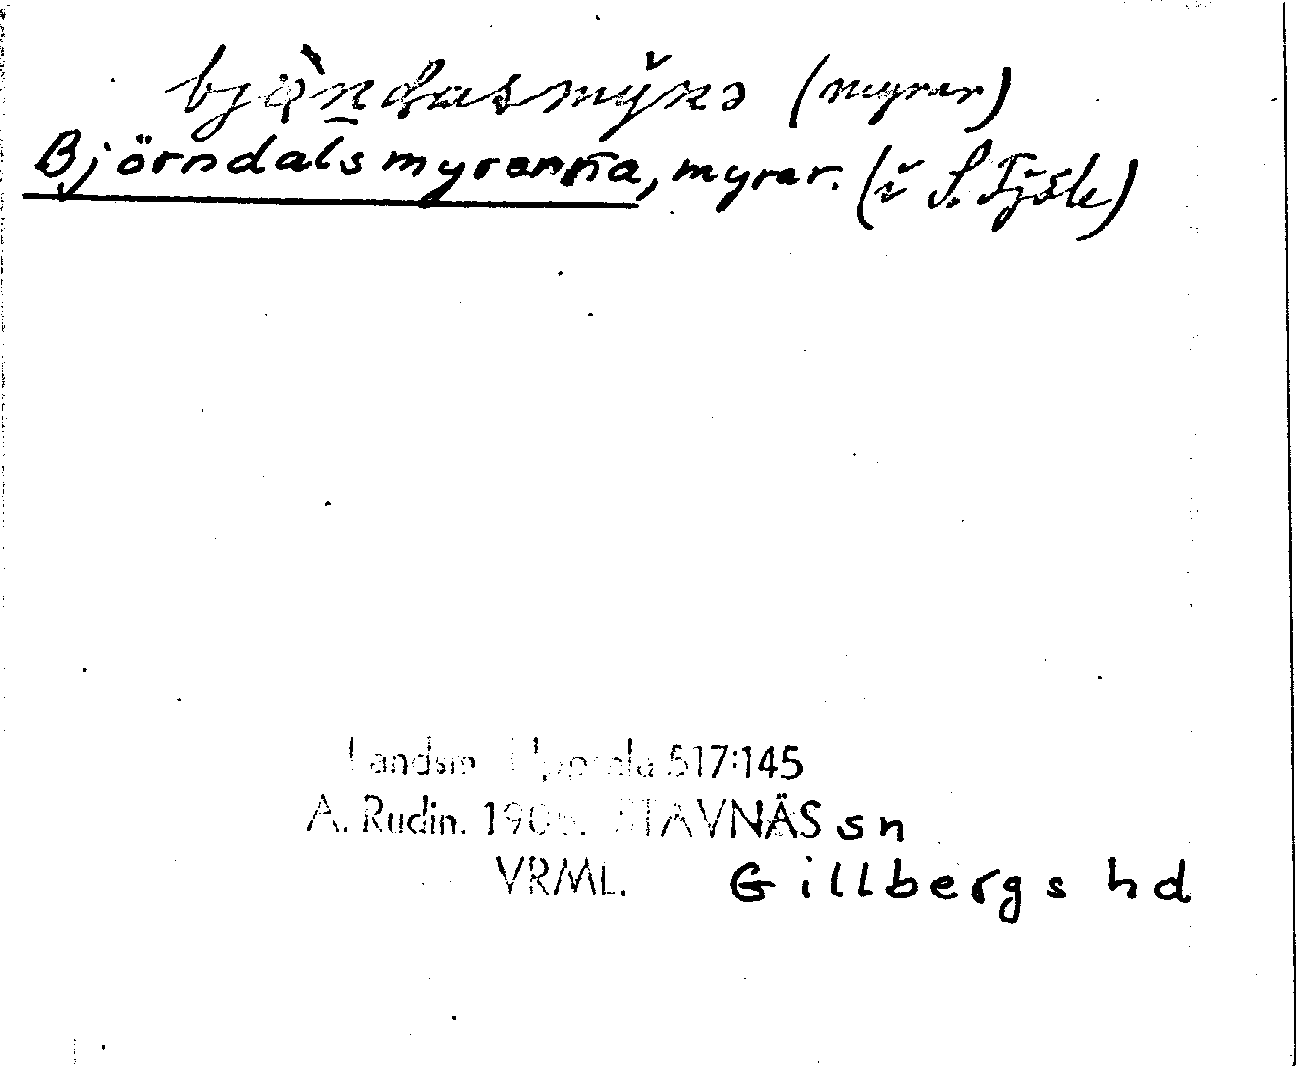 bjǫ̀ṉdasmy̆ṉə (myrar)
Björndalsmyrarna, myrar. (i S. Fjöle)
Landsm. Uppsala 517:145
A. Rudin. 1905. STAVNÄS sn
VRML. Gillbergs hd